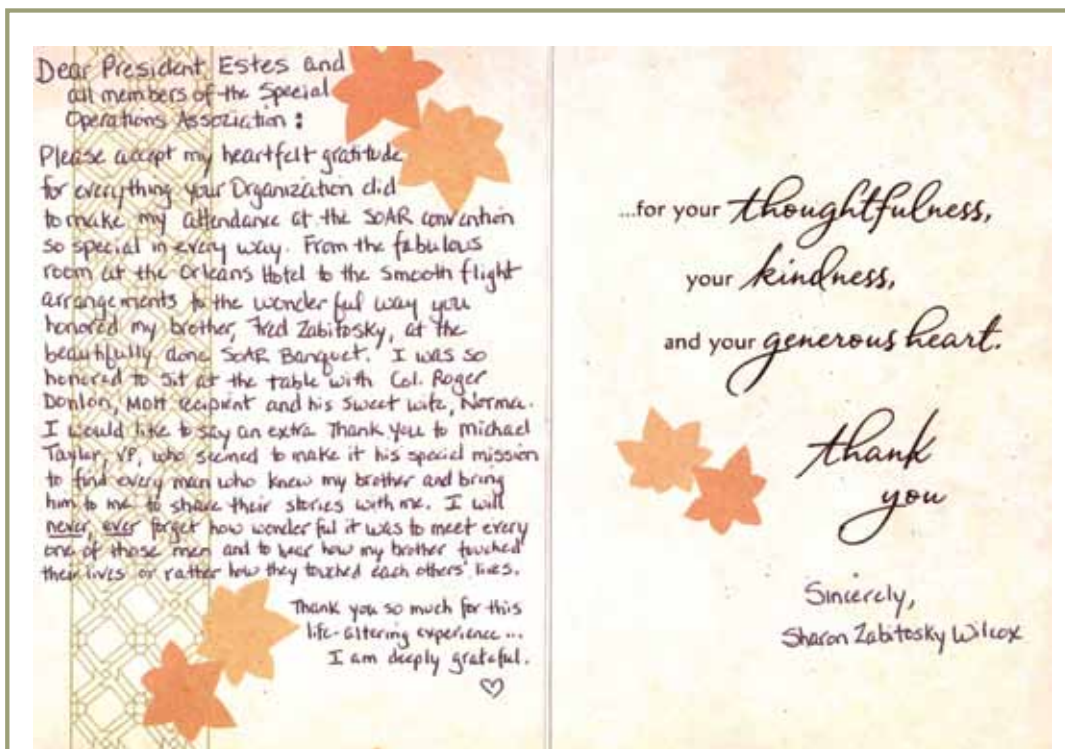 Dear President Estes and
all members of the Special
Operations Association:
Please accept my heartfelt gratitude
for everything your Organization did
to make my attendance at the SOAR convention
so special in every way. From the fabulous
room at the Orleans Hotel to the smooth flight
arrangements to the wonderful way you
honored my brother, Fred Zabitosky, at the
beautifully done SOAR Banquet. I was so
honored to sit at the table with Col. Roger
Donlon, MOH recipient and his sweet wife, Norma.
I would like to say an extra Thank you to Michael
Taylor, VP, who seemed to make it his special mission
to find every man who knew my brother and bring
him to me to share their stories with me. I will
never, ever forget how wonderful it was to meet every
one of those men and to hear how my brother touched
their lives or rather how they touched each others' lives.
Thank you so much for this
life-altering experience...
I am deeply grateful.
...for your thoughtfulness,
your kindness,
and your generous heart.
thank
you
Sincerely,
Sharon Zabitosky Wilcox